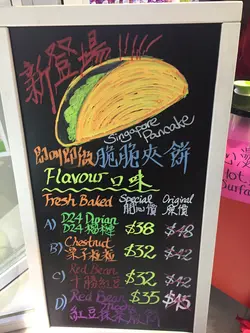 新登場!!!!!
Singapore
Pancake
即叫即做 脆脆夾餅
Flavour 口味
Fresh Baked Special Original
開心價 原價
A) D24 Durian
D24 榴槤 $38 $48
B) Chestnut
栗子粒粒 $32 $42
C) Red Bean
紅豆 $32 $42
D) Red Bean
紅豆 $35 $45